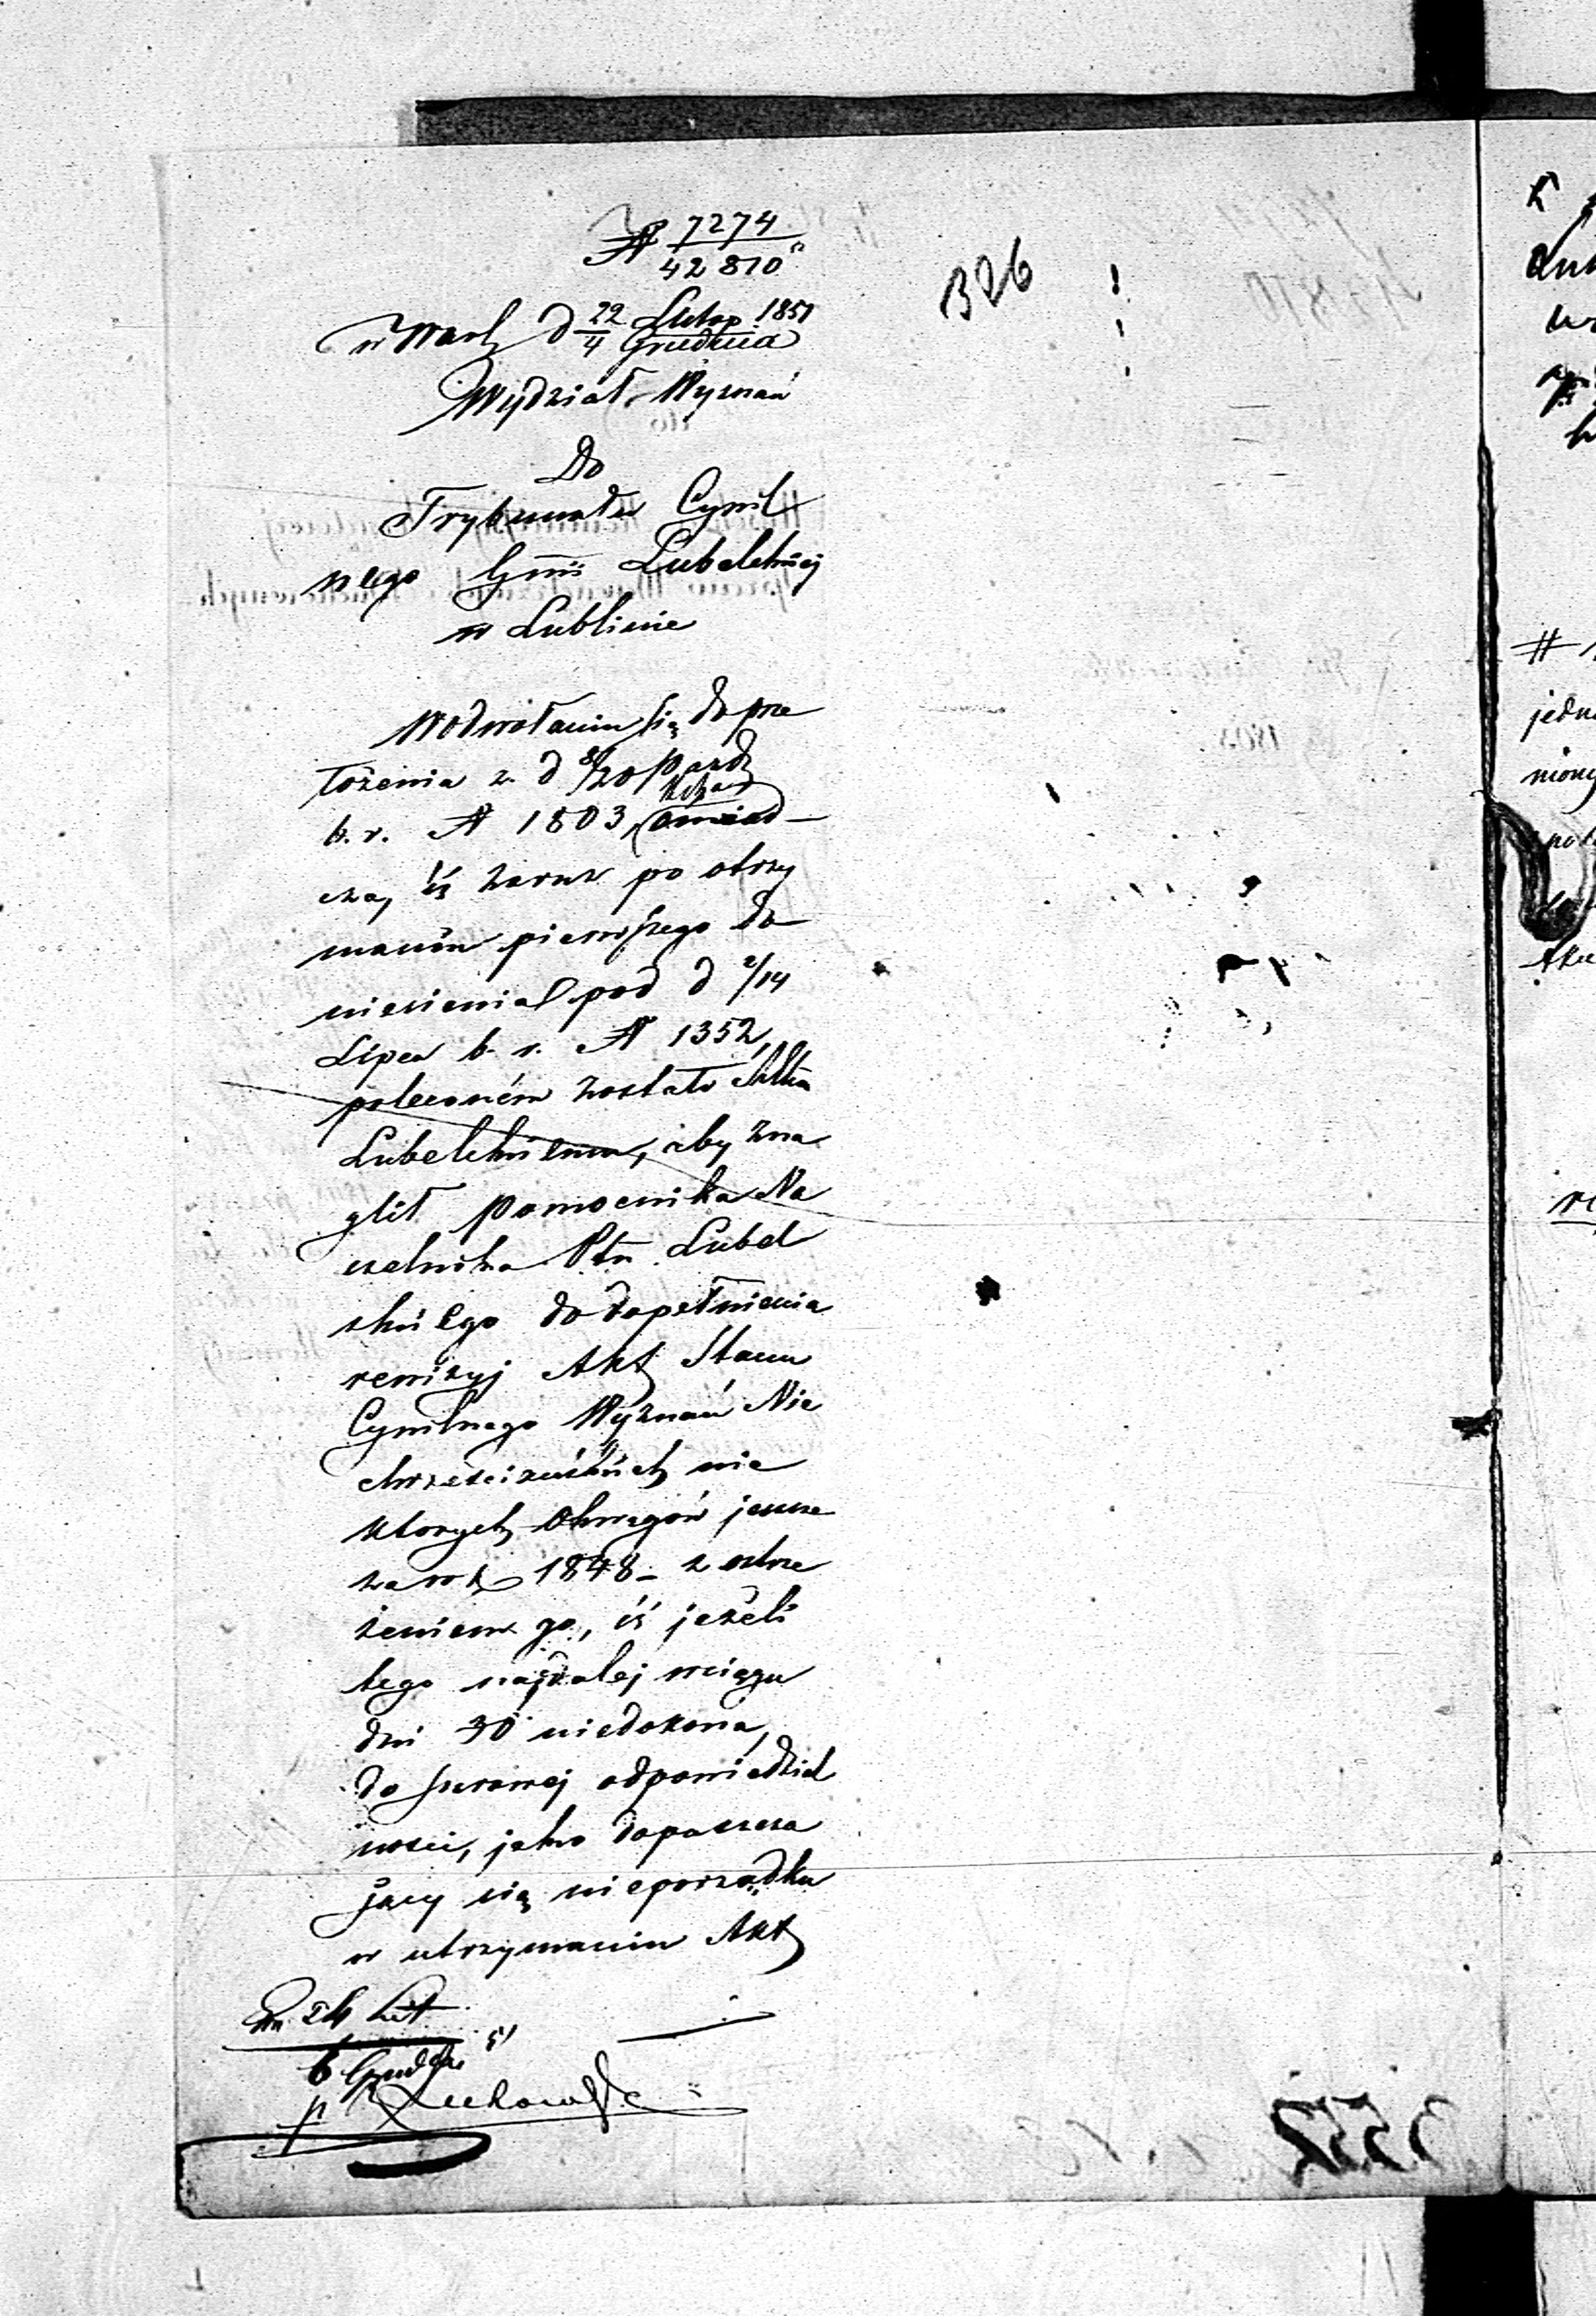 № 7274
42810
326
w Warsz d 22 Listop. 1851
4 Grudnia
Wydział Wyznań
Do
Trybunału Cywil
nego Gnii Lubelskiéj
w Lublinie
W odwołaniu się do prze
łożenia z d 8/20 Paźdz
b. r. № 1803,
cza, iż zaraz po otrzy
maniu pierwszego do
niesienia pod d 2/14
Lipca b. r. № 1352,
poleconém zostało
Lubelskiemu, aby zna
glił Pomocnika Na
czelnika Ptu Lubel
skiego do dopełnienia
rewizyj Akt Stanu
Cywilnego Wyznań Nie
chrześciańskich nie
ktorych Okręgów jeszcze
za rok 1848 – z ostrze
żeniem go, iż jeżeli
tego najdalej w ciągu
dni 30 niedokona,
do surowej odpowiedzial
ności, jako dopuszcza
jący się nieporządku
w utrzymaniu Akt
24 List
6 Grudnia 51
#
jedn
niony